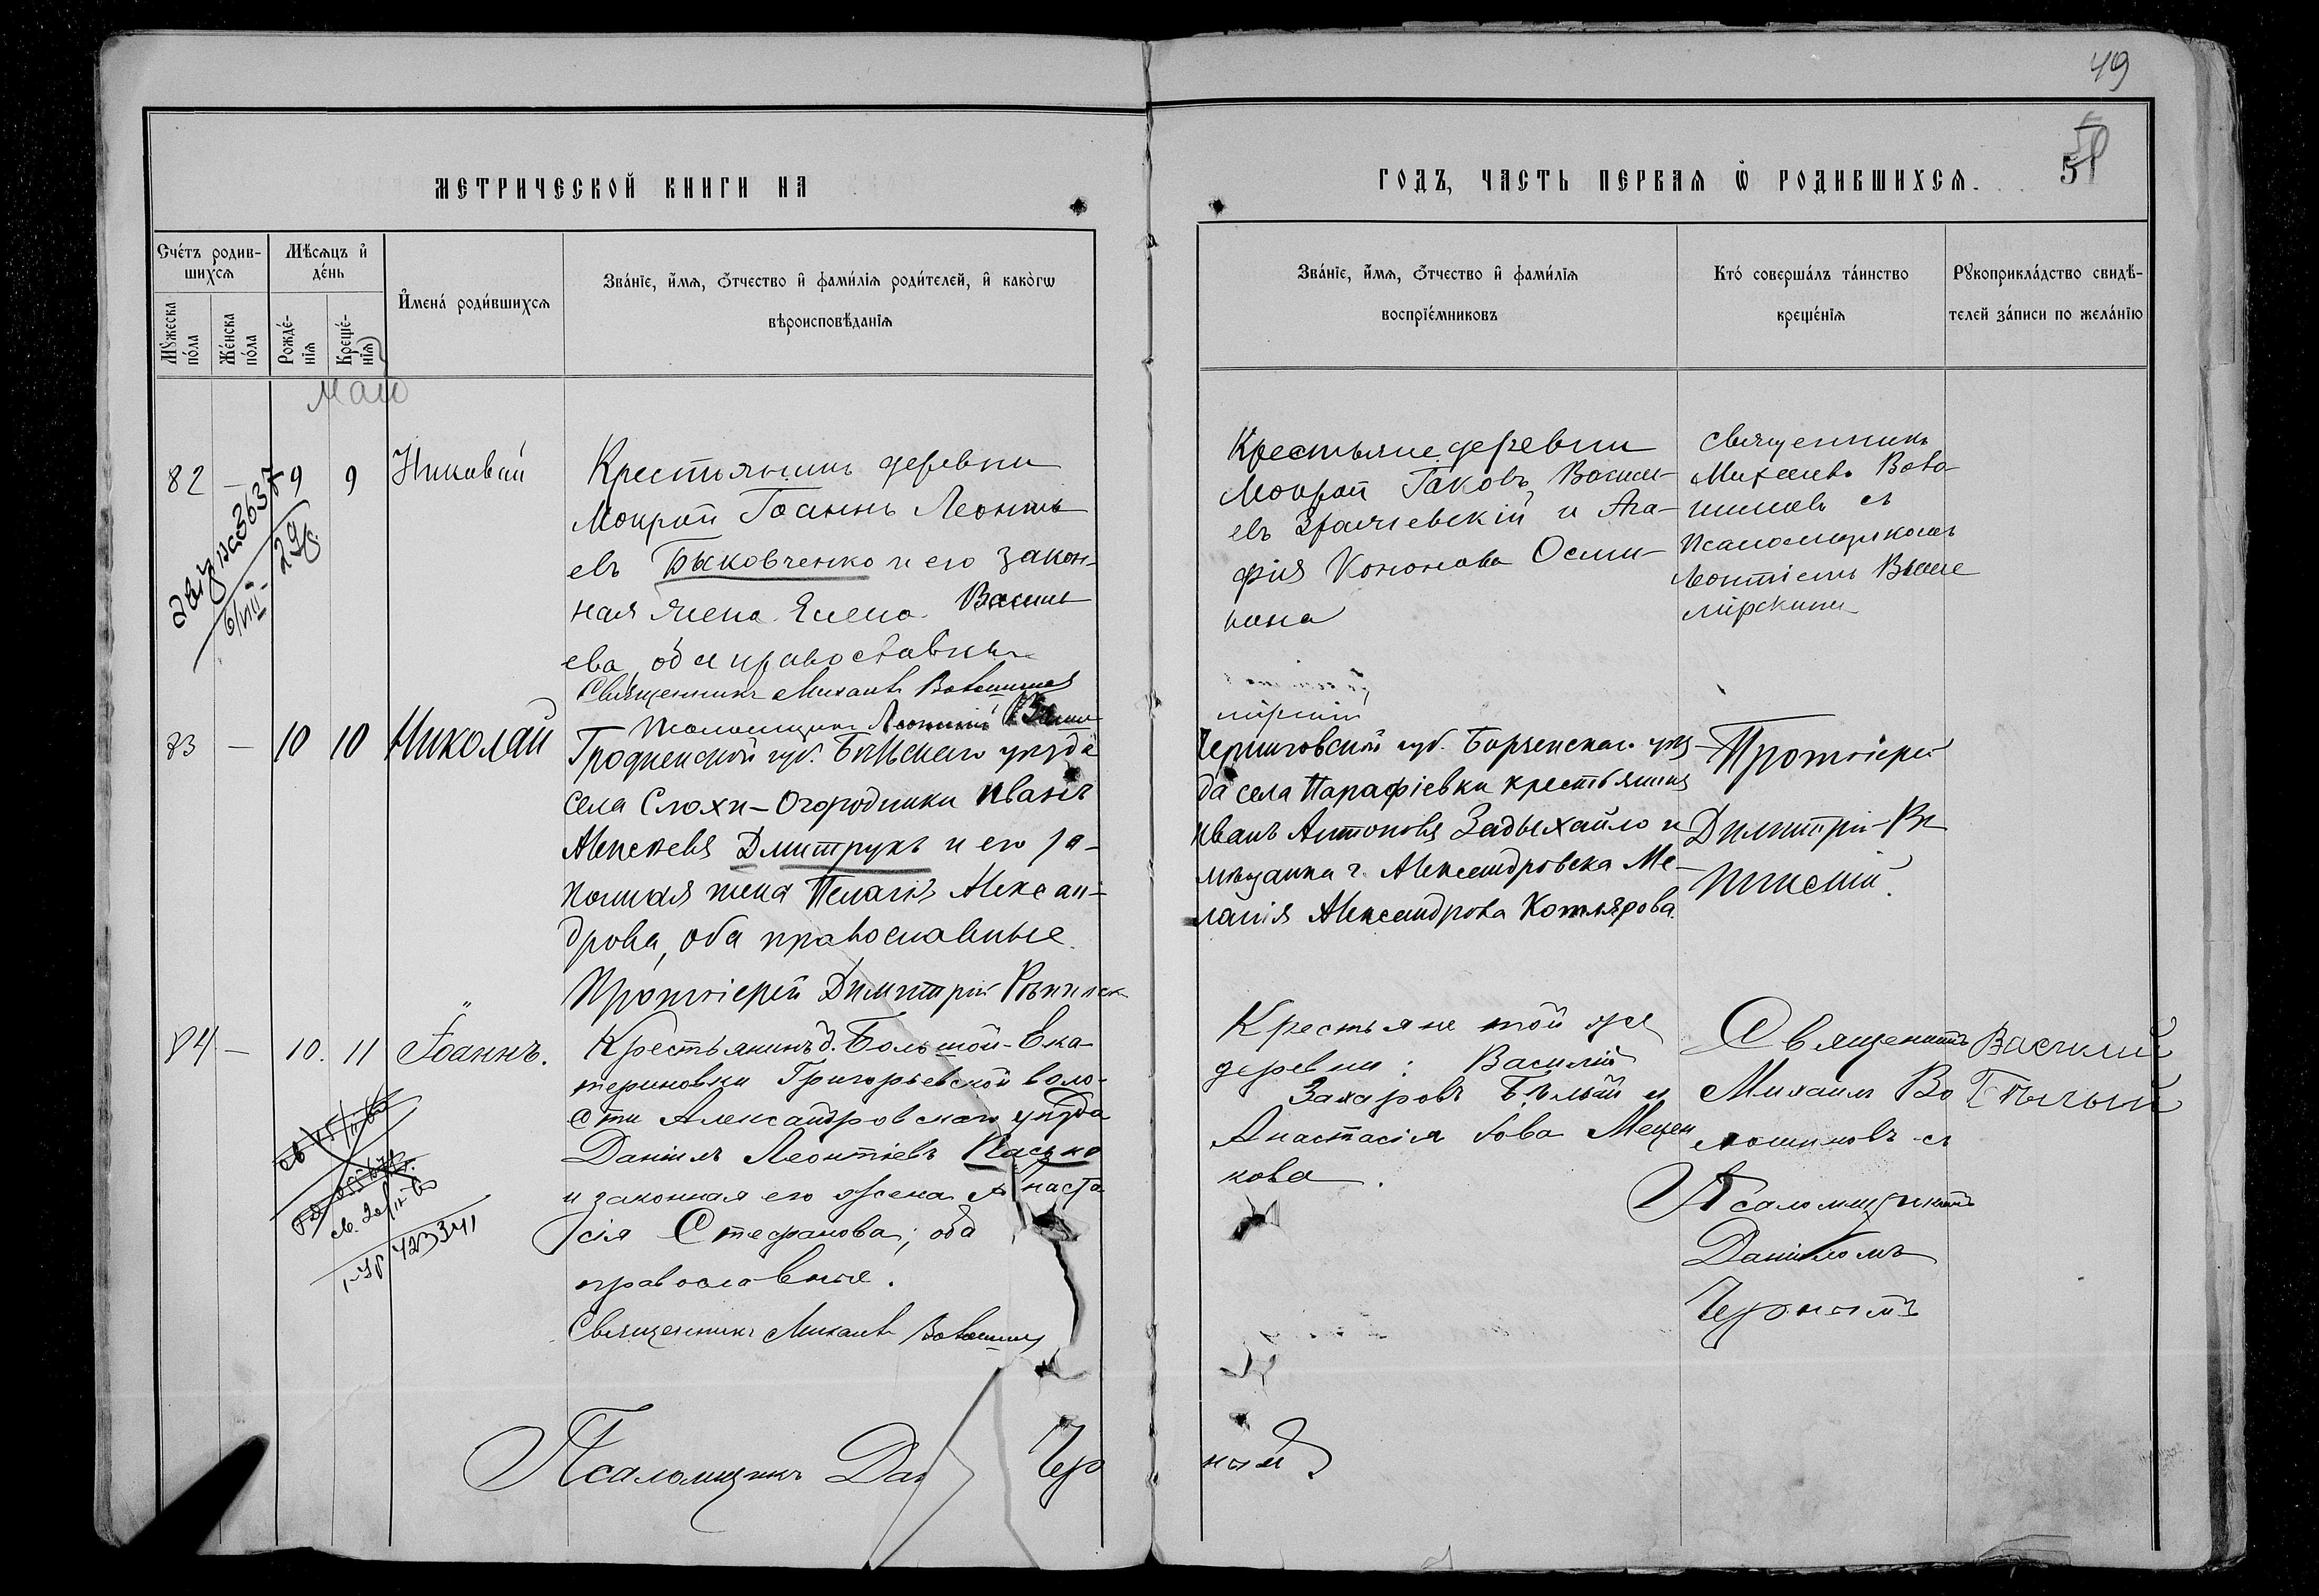 49
50
51
МЕТРИЧЕСКОЙ КНИГИ НА
ГОДЪ, ЧАСТЬ ПЕРВАЯ Ѡ РОДИВШИХСЯ.
Счéтъ родив-
шихсѧ
Мѣсѧцъ и҆
дéнь
Мꙋ́жеска
по́ла
Же́нска
по́ла
Рожде́-
нїѧ
Креще́-
нїѧ
И҆мена́ роди́вшихсѧ
Зва́нїе, и҆́мѧ, ѻ҆́тчество и҆ фами́лїѧ роди́телей, и҆ како́гѡ
вѣроисповѣ́данїѧ
Зва́нїе, и҆́мѧ, ѻ҆́тчество и҆ фами́лїѧ
воспрїе́мниковъ
Кто́ соверша́лъ та́инство
креще́нїѧ
Рꙋкоприкла́дство свидѣ́-
телей за́писи по жела́нїю
май
82 – 9 9 Николай
Крестьянинъ деревни
Мокрой Іоаннъ Леонть
евъ Быковченко и его закон-
ная жена Елена Василь
ева, оба православные
Священникъ Михаилъ Волошиновъ
Псаломщикъ Леонтий
Крестьяне деревни
Мокрой Іаковъ Васили-
евъ Зрачевскій и Ага-
фія Кононова Осми-
нина
Священникъ
Михаилъ Воло-
шиновъ съ
Псаломщикомъ
Леонтіемъ Выше
мірскимъ
мірскій
83 – 10 10 Николай
Гродненской губ. Бѣльскаго уѣзда
села Слохи-Огородники Иванъ
Алексѣевъ Дмитрукъ и его за-
конная жена Пелагія Алексан-
дрова, оба православные.
Протоіерей Димитрій
Черниговской губ. Борзенскаго уѣз-
да села Парафіевки крестьянинъ
Иванъ Антоновъ Задыхайло и
мѣщанка г. Александровска Ме-
ланія Александрова Котлярова.
Протоіерей
Димитрій
84 – 10. 11 Іоаннъ.
Крестьянинъ д. Большой-Ека-
териновки Григорьевской воло-
сти Александровскаго уѣзда
Даніилъ Леонтіевъ Пасько
и законная его жена Анаста
сія Стефанова; оба
православные.
Священникъ Михаилъ Волошиновъ
Крестьяне той же
деревни: Василій
Захаровъ Бѣлый и
Анастасія Іова Мецен
кова.
Священникъ
Михаилъ Во
лошиновъ съ
Псаломщикомъ
Даніиломъ
Чернымъ
Василий
Бѣлый
423341
Псаломщикъ Дан Чер
ный